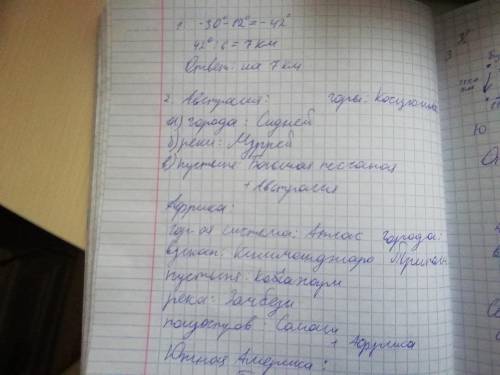 1. -30° - 12° = -42°
42° : 6 = 7 км
Ответ: на 7 км
2. Австралия: горы: Косцюшко
а) города: Сидней
б) реки: Муррей
в) пустыне: Большая песчаная
+ Австралия
Африка:
гор-ая система: Атлас города:
вулкан: Килиманджаро
пустыне: Калахари
река: Замбези
полуостров: Сомали
+ Африка
Южная Америка: